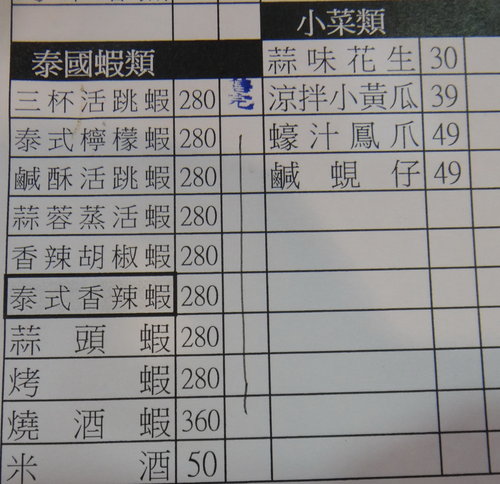 泰國蝦類
三杯活跳蝦 280
泰式檸檬蝦 280
鹹酥活跳蝦 280
蒜蓉蒸活蝦 280
香辣胡椒蝦 280
泰式香辣蝦 280
蒜頭蝦 280
烤蝦 280
燒酒蝦 360
米酒 50
小菜類
蒜味花生 30
涼拌小黃瓜 39
蠔汁鳳爪 49
鹹蜆仔 49